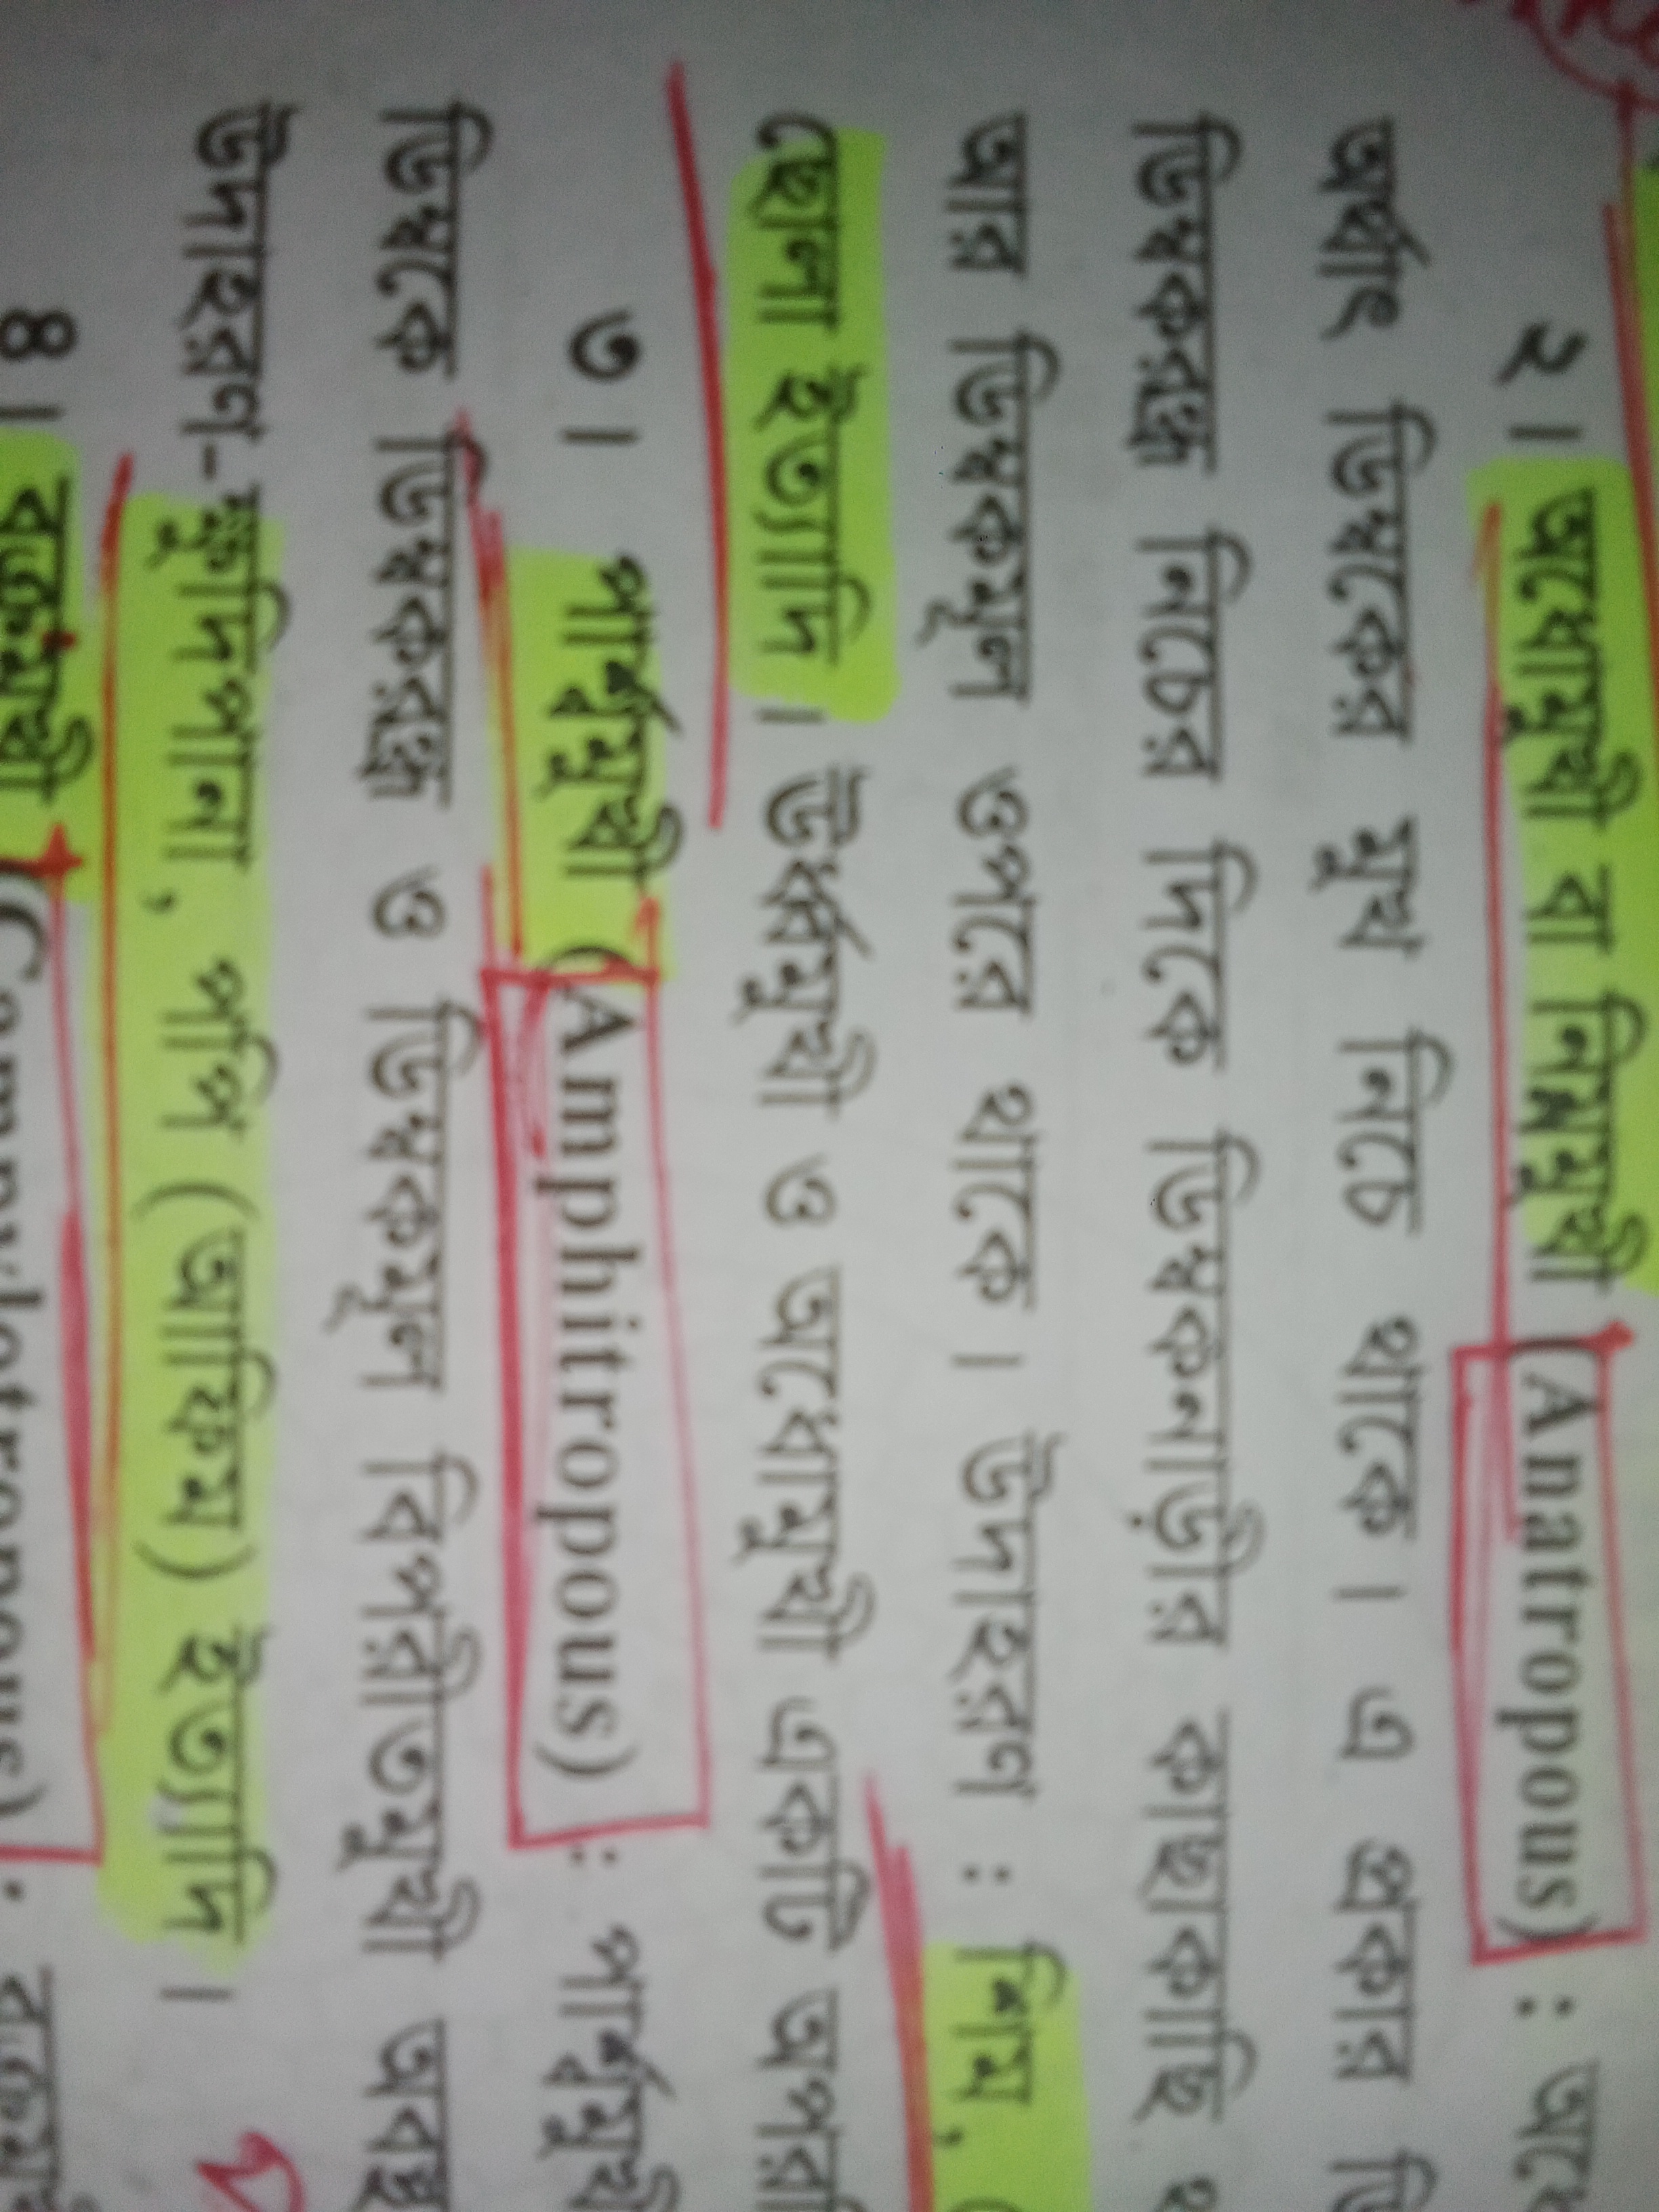 ২। অধোমুখী বা নিম্নমুখী (Anatropous) : অধো
অর্থাৎ ডিম্বকের মুখ নিচে থাকে। এ প্রকার ডি
ডিম্বকরন্ধ্র নিচের দিকে ডিম্বকনাড়ীর কাছাকাছি থ
আর ডিম্বকমূল ওপরে থাকে। উদাহরণ : শিম,
ছোলা ইত্যাদি। ঊর্ধ্বমুখী ও অধোমুখী একটি অপরা
৩। পার্শ্বমুখী (Amphitropous) : পার্শ্বমুখী
ডিম্বকে ডিম্বকরন্ধ্র ও ডিম্বকমূল বিপরীতমুখী অবস্থ
উদাহরণ-ক্ষুদিপানা, পপি (আফিম) ইত্যাদি।
৪। বক্রমুখী (Campylotropous) : বক্রমু